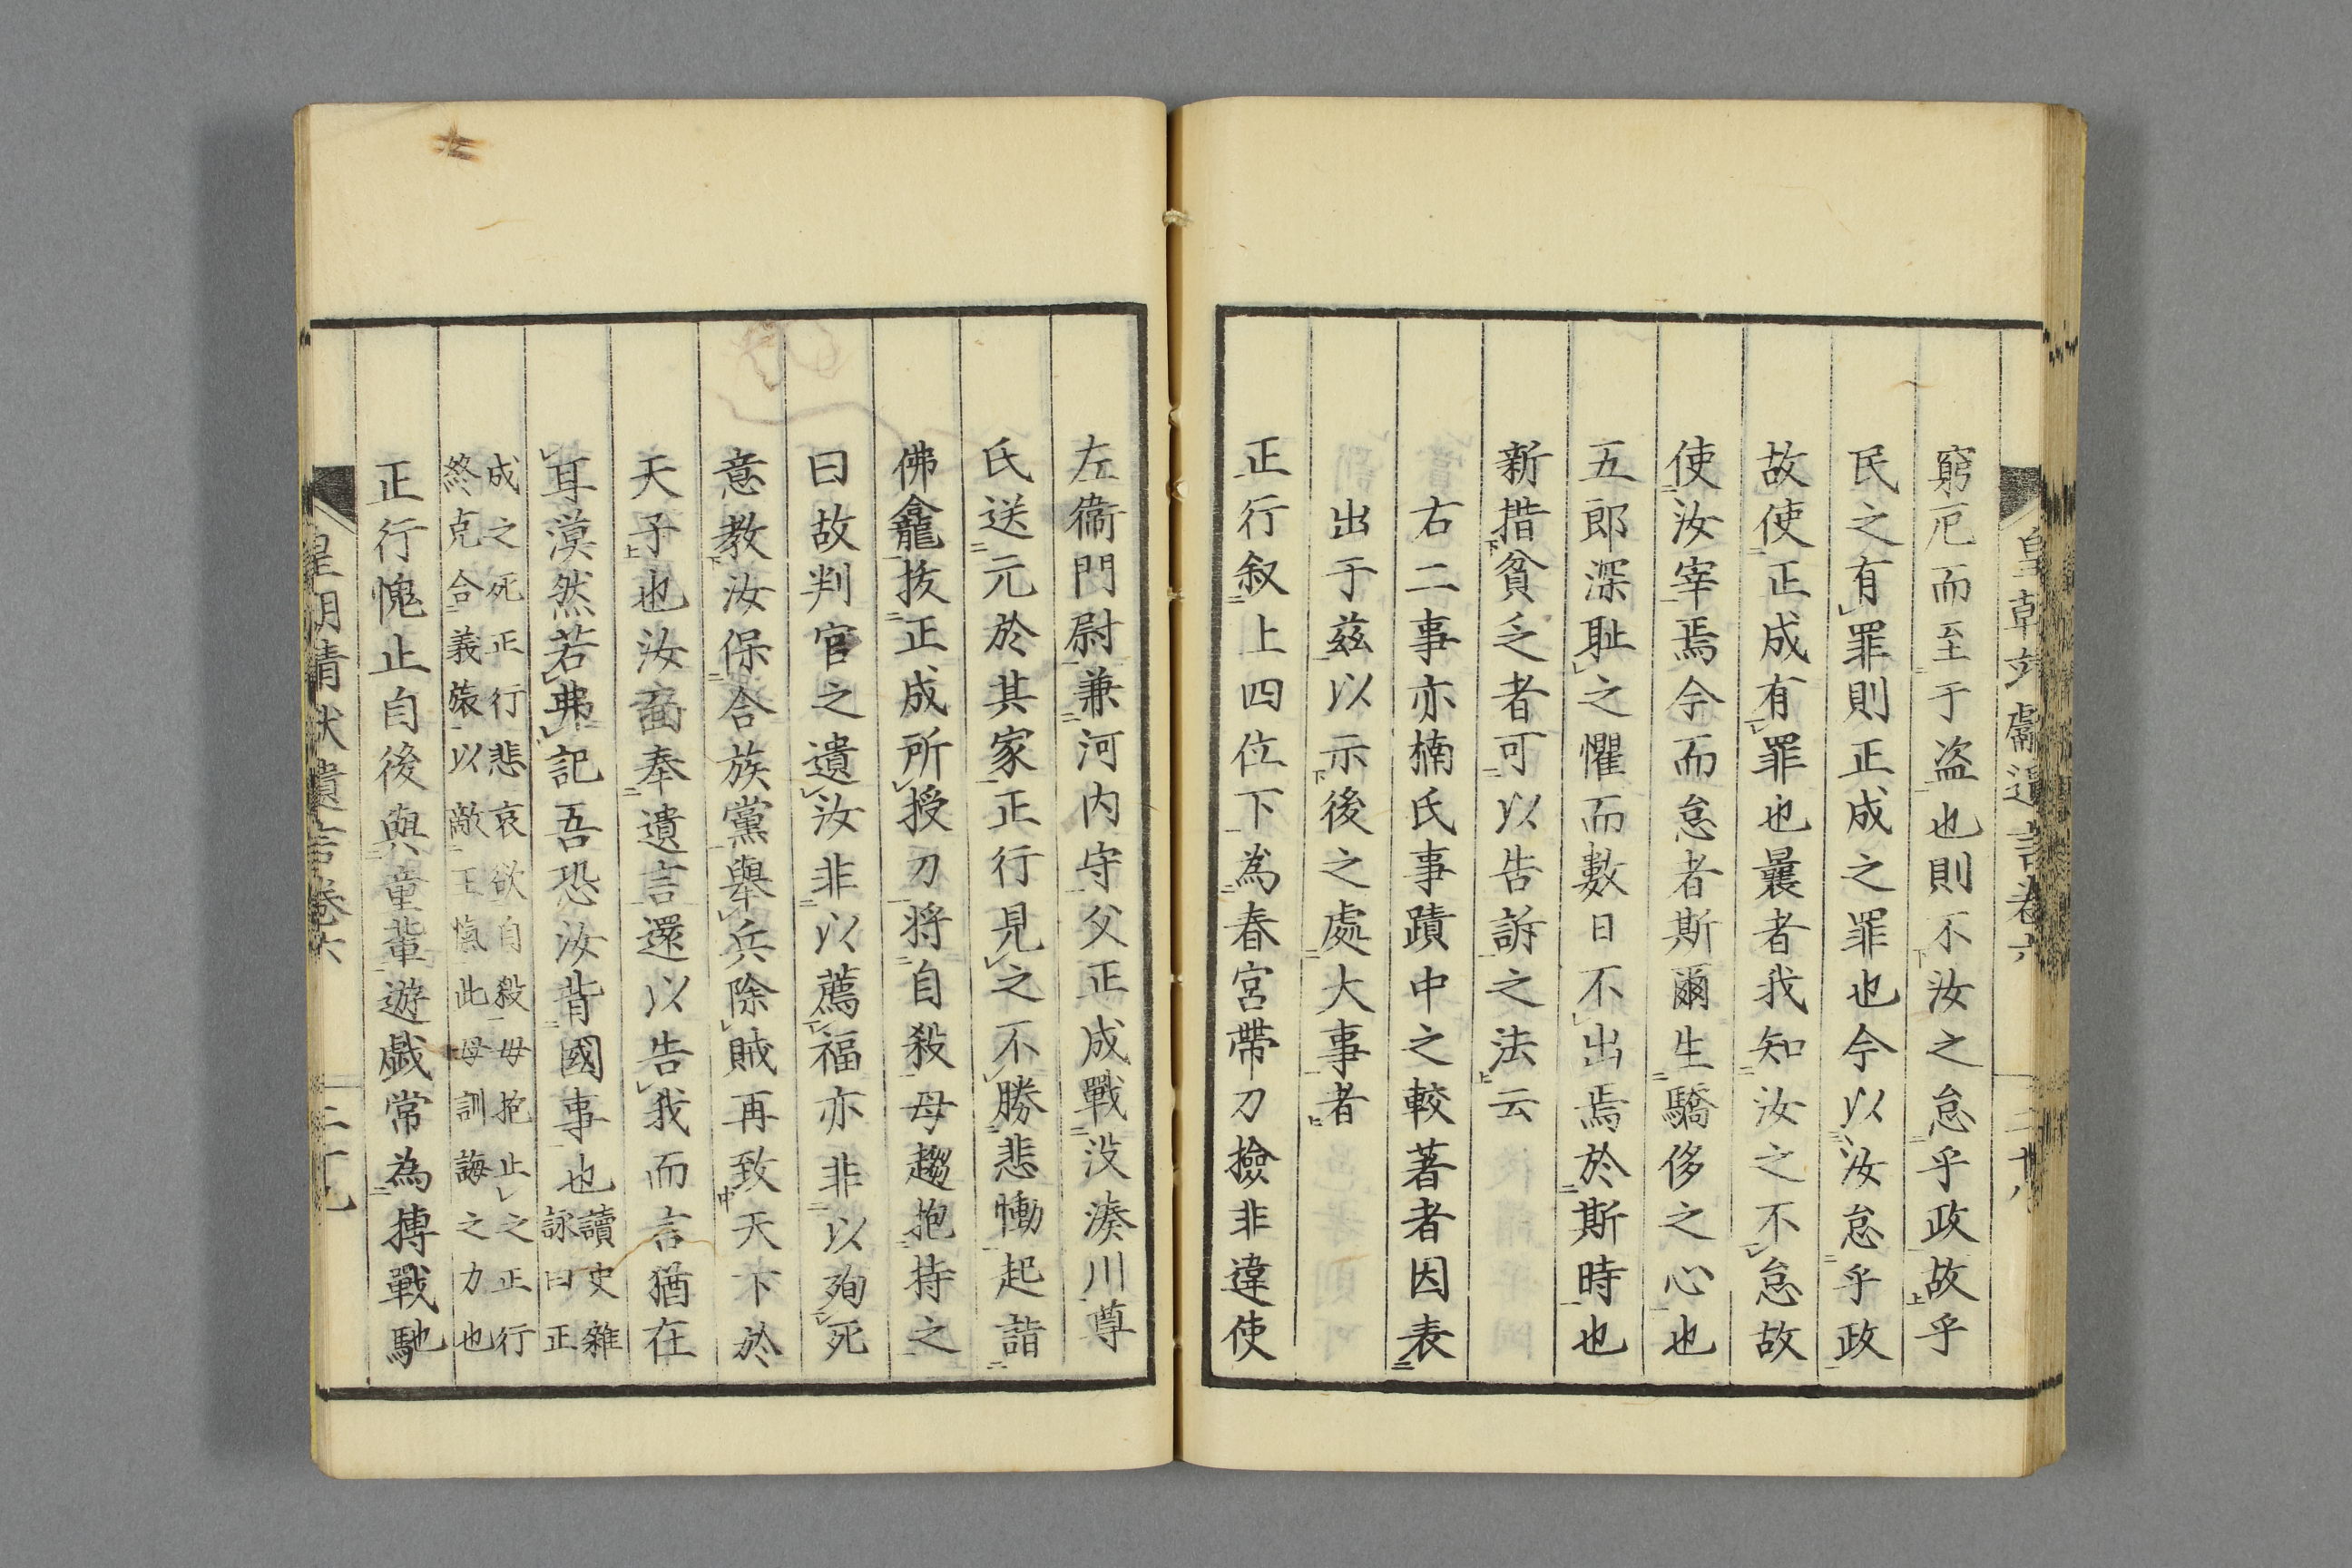 窮厄而至于盗也則不汝之怠乎政故乎
民之有罪則正成之罪也今以汝怠乎政
故使正成有罪也曩者我知汝之不怠故
使汝宰焉今而怠者斯爾生驕侈之心也
五郎深耻之懼而數日不出焉於斯時也
新措貧乏者可以告訴之法云
右二事亦楠氏事蹟中之較著者因表
出于茲以示後之處大事者
正行叙上四位下為春宮帶刀撿非違使
左衞門尉兼河内守父正成戰没湊川尊
氏送元於其家正行見之不勝悲慟起詣
佛龕抜正成所授刀將自殺母趨抱持之
曰故判官之遺汝非以薦福亦非以殉死
意教汝保合族黨舉兵除賊再致天下於
天子也汝啻奉遺言還以告我而言猶在
耳漠然若弗記吾恐汝背國事也讀史雜
詠曰正
成之死正行悲哀欲自殺母抱止之正行
終克合義旅以敵王愾此母訓誨之力也
正行愧止自後與童輩遊戯常為搏戰馳
皇朝靖獻遺言卷六
二十九